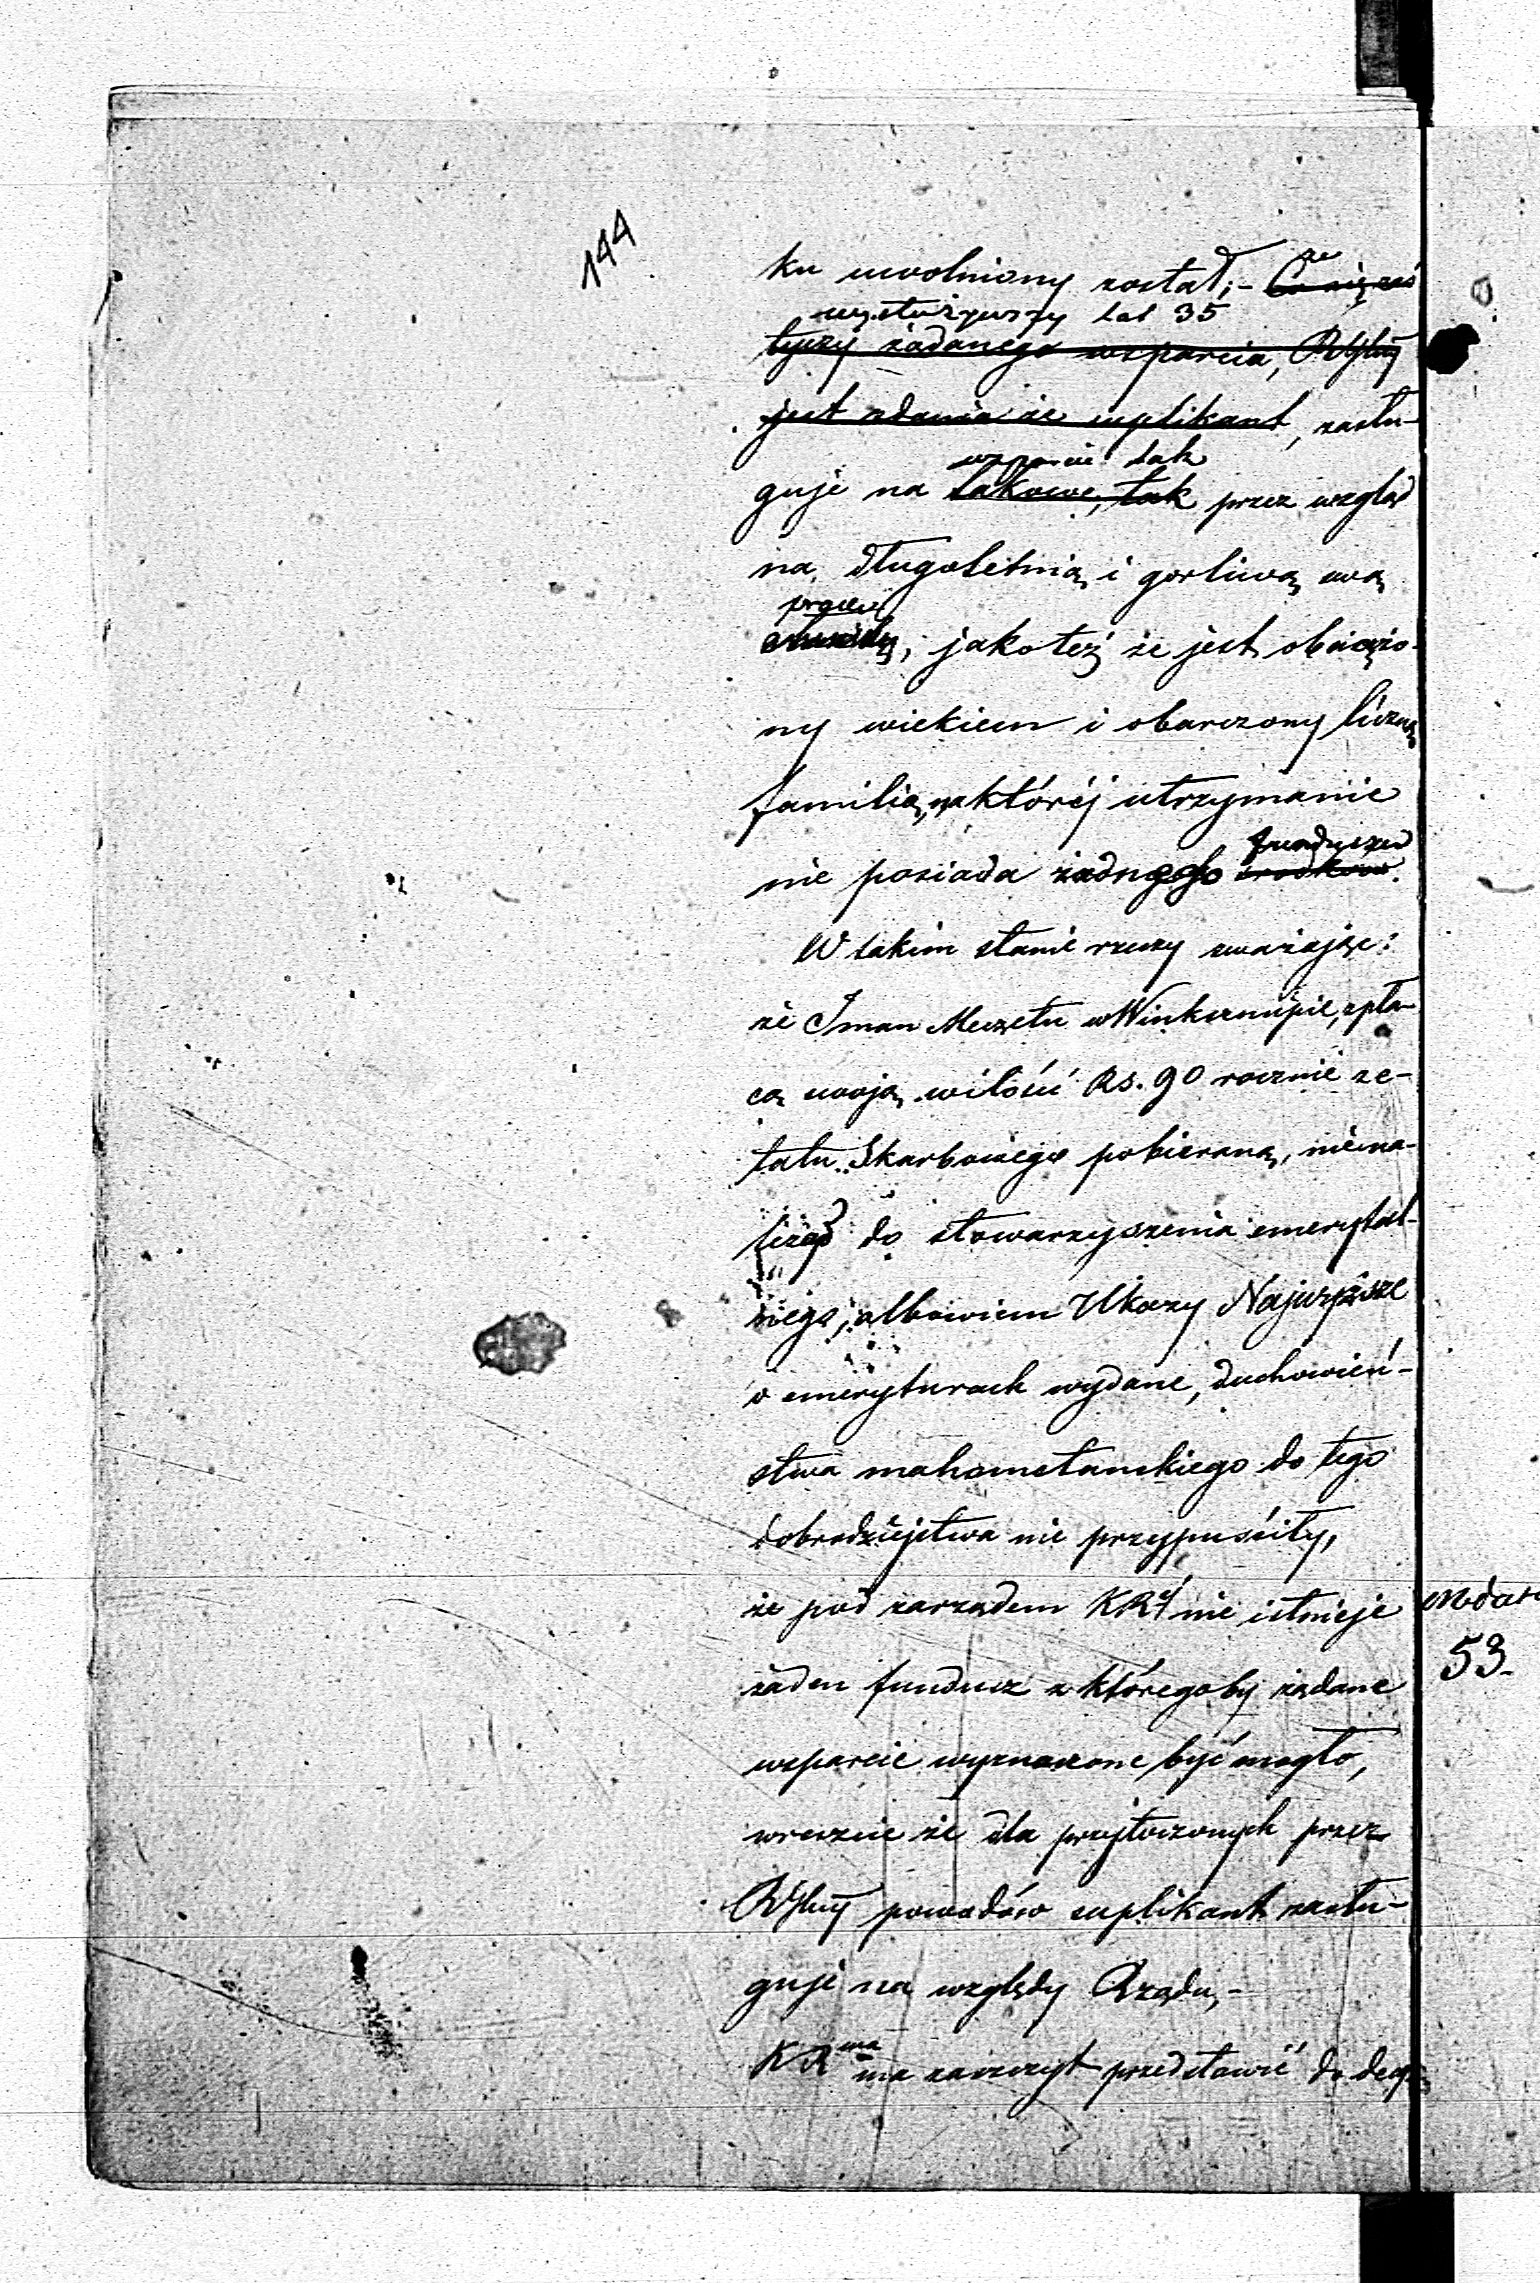 144
ku uwolniony został;- że Co się zaś
wysłużywszy lat 35
tyczy żądanego wsparcia, RGlny
jest zdania że suplikant, zasłu-
wsparcie tak
guje na takowe, tak przez wzgląd
na długoletnią i gorliwą swą
pracę
, jakoteż że jest obciążo-
ny wiekiem i obarczony liczną
familią, na któréj utrzymanie
funduszu
nie posiada żadnego środków.
W takim stanie rzeczy zważając:
że Iman Meczetu w Winksznupie, z pła-
cą swoją w ilości Rs. 90 rocznie ze-
tatu Skarbowego pobieraną, niena-
leżał do stowarzyszenia emerytal-
nego; albowiem Ukazy Najwyższe
o emeryturach wydane, duchowień-
stwa mahometańskiego do tego
dobrodziejstwa nie przypuściły,
że pod zarządem KRy nie istnieje
żaden fundusz z któregoby żądane
wsparcie wyznaczone być mogło,
wreszcie że dla przytoczonych przez
RGlny powodów suplikant zasłu-
guje na względy Rządu,-
KRwa ma zaszczyt przedstawić do decy
53.